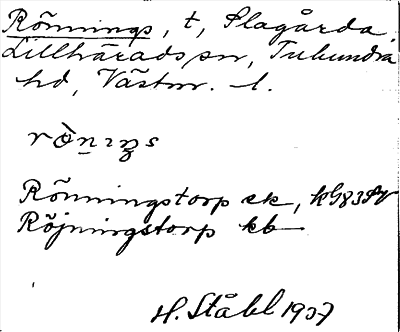 Rönnings, t, Slagårda,
Lillhärads sn, Tuhundra
hd, Västm. l.
Rönningstorp ek,
Röjningstorp kb
H. Ståhl 1937